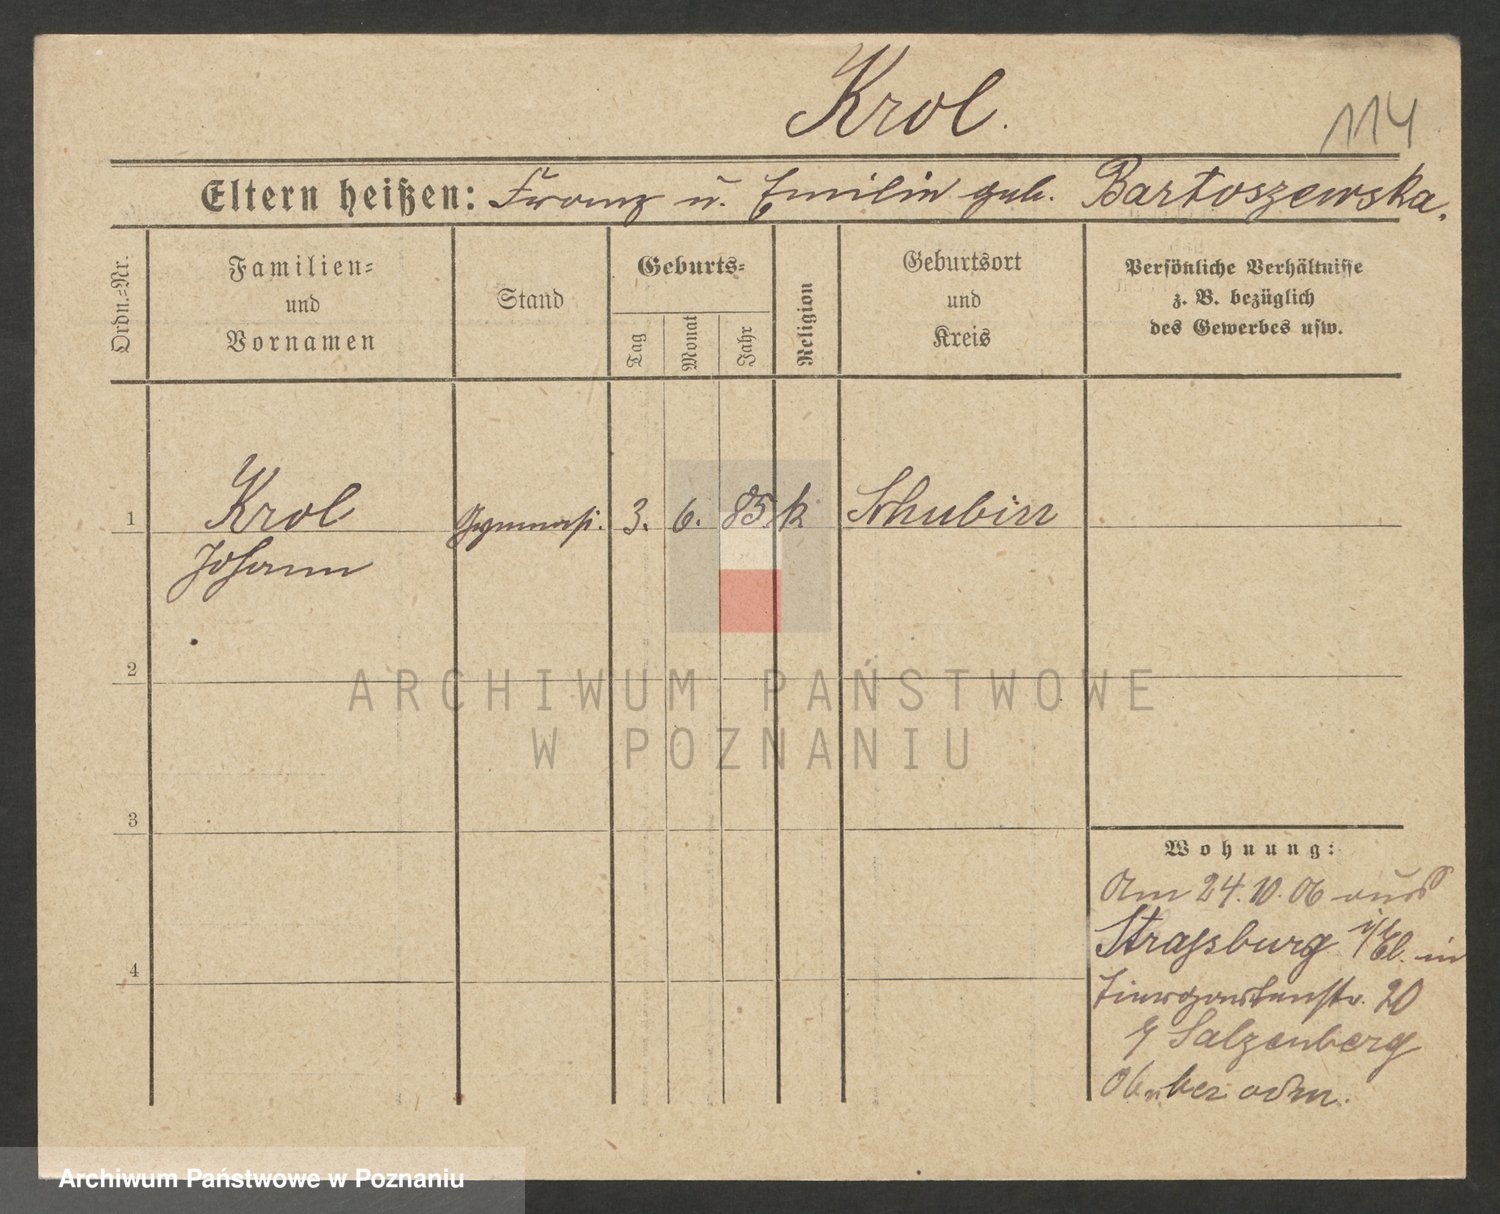 Krol.
114
Eltern heißen: Franz u. Emilie geb. Bartoszewska.
Ordn.=Nr.
Familien=
und
Vornamen
Stand
Geburts=
Tag
Monat
Jahr
Religion
Geburtsort
und
Kreis
Persönliche Verhältnisse
z. B. bezüglich
des Gewerbes usw.
1 Krol Gymnasi. 3. 6. 85. k Schubin
Johann
2
ARCHIWUM PAŃSTWOWE
W POZNANIU
3
Wohnung:
Am 24.10.06 aus
Strassburg i/El. in
Tiergartenstr. 20
Salzenberg
4
Archiwum Państwowe w Poznaniu